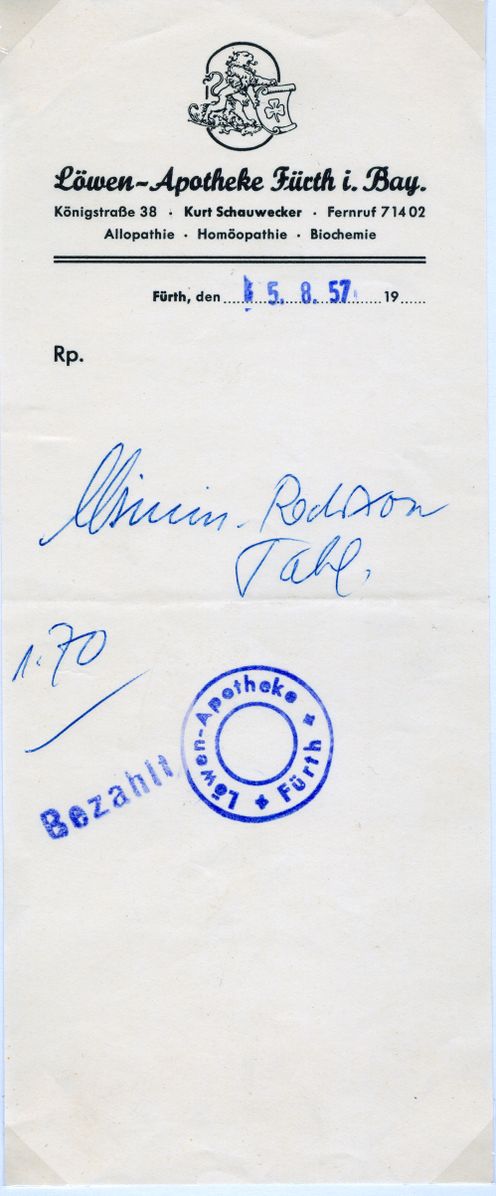 Löwen-Apotheke Fürth i. Bay.
Königstraße 38 · Kurt Schauwecker · Fernruf 71402
Allopathie · Homöopathie · Biochemie
Fürth, den 5. 8. 57 19
Rp.
Redoxon
Tabl.
1.70
Löwen-Apotheke + Fürth +
Bezahlt